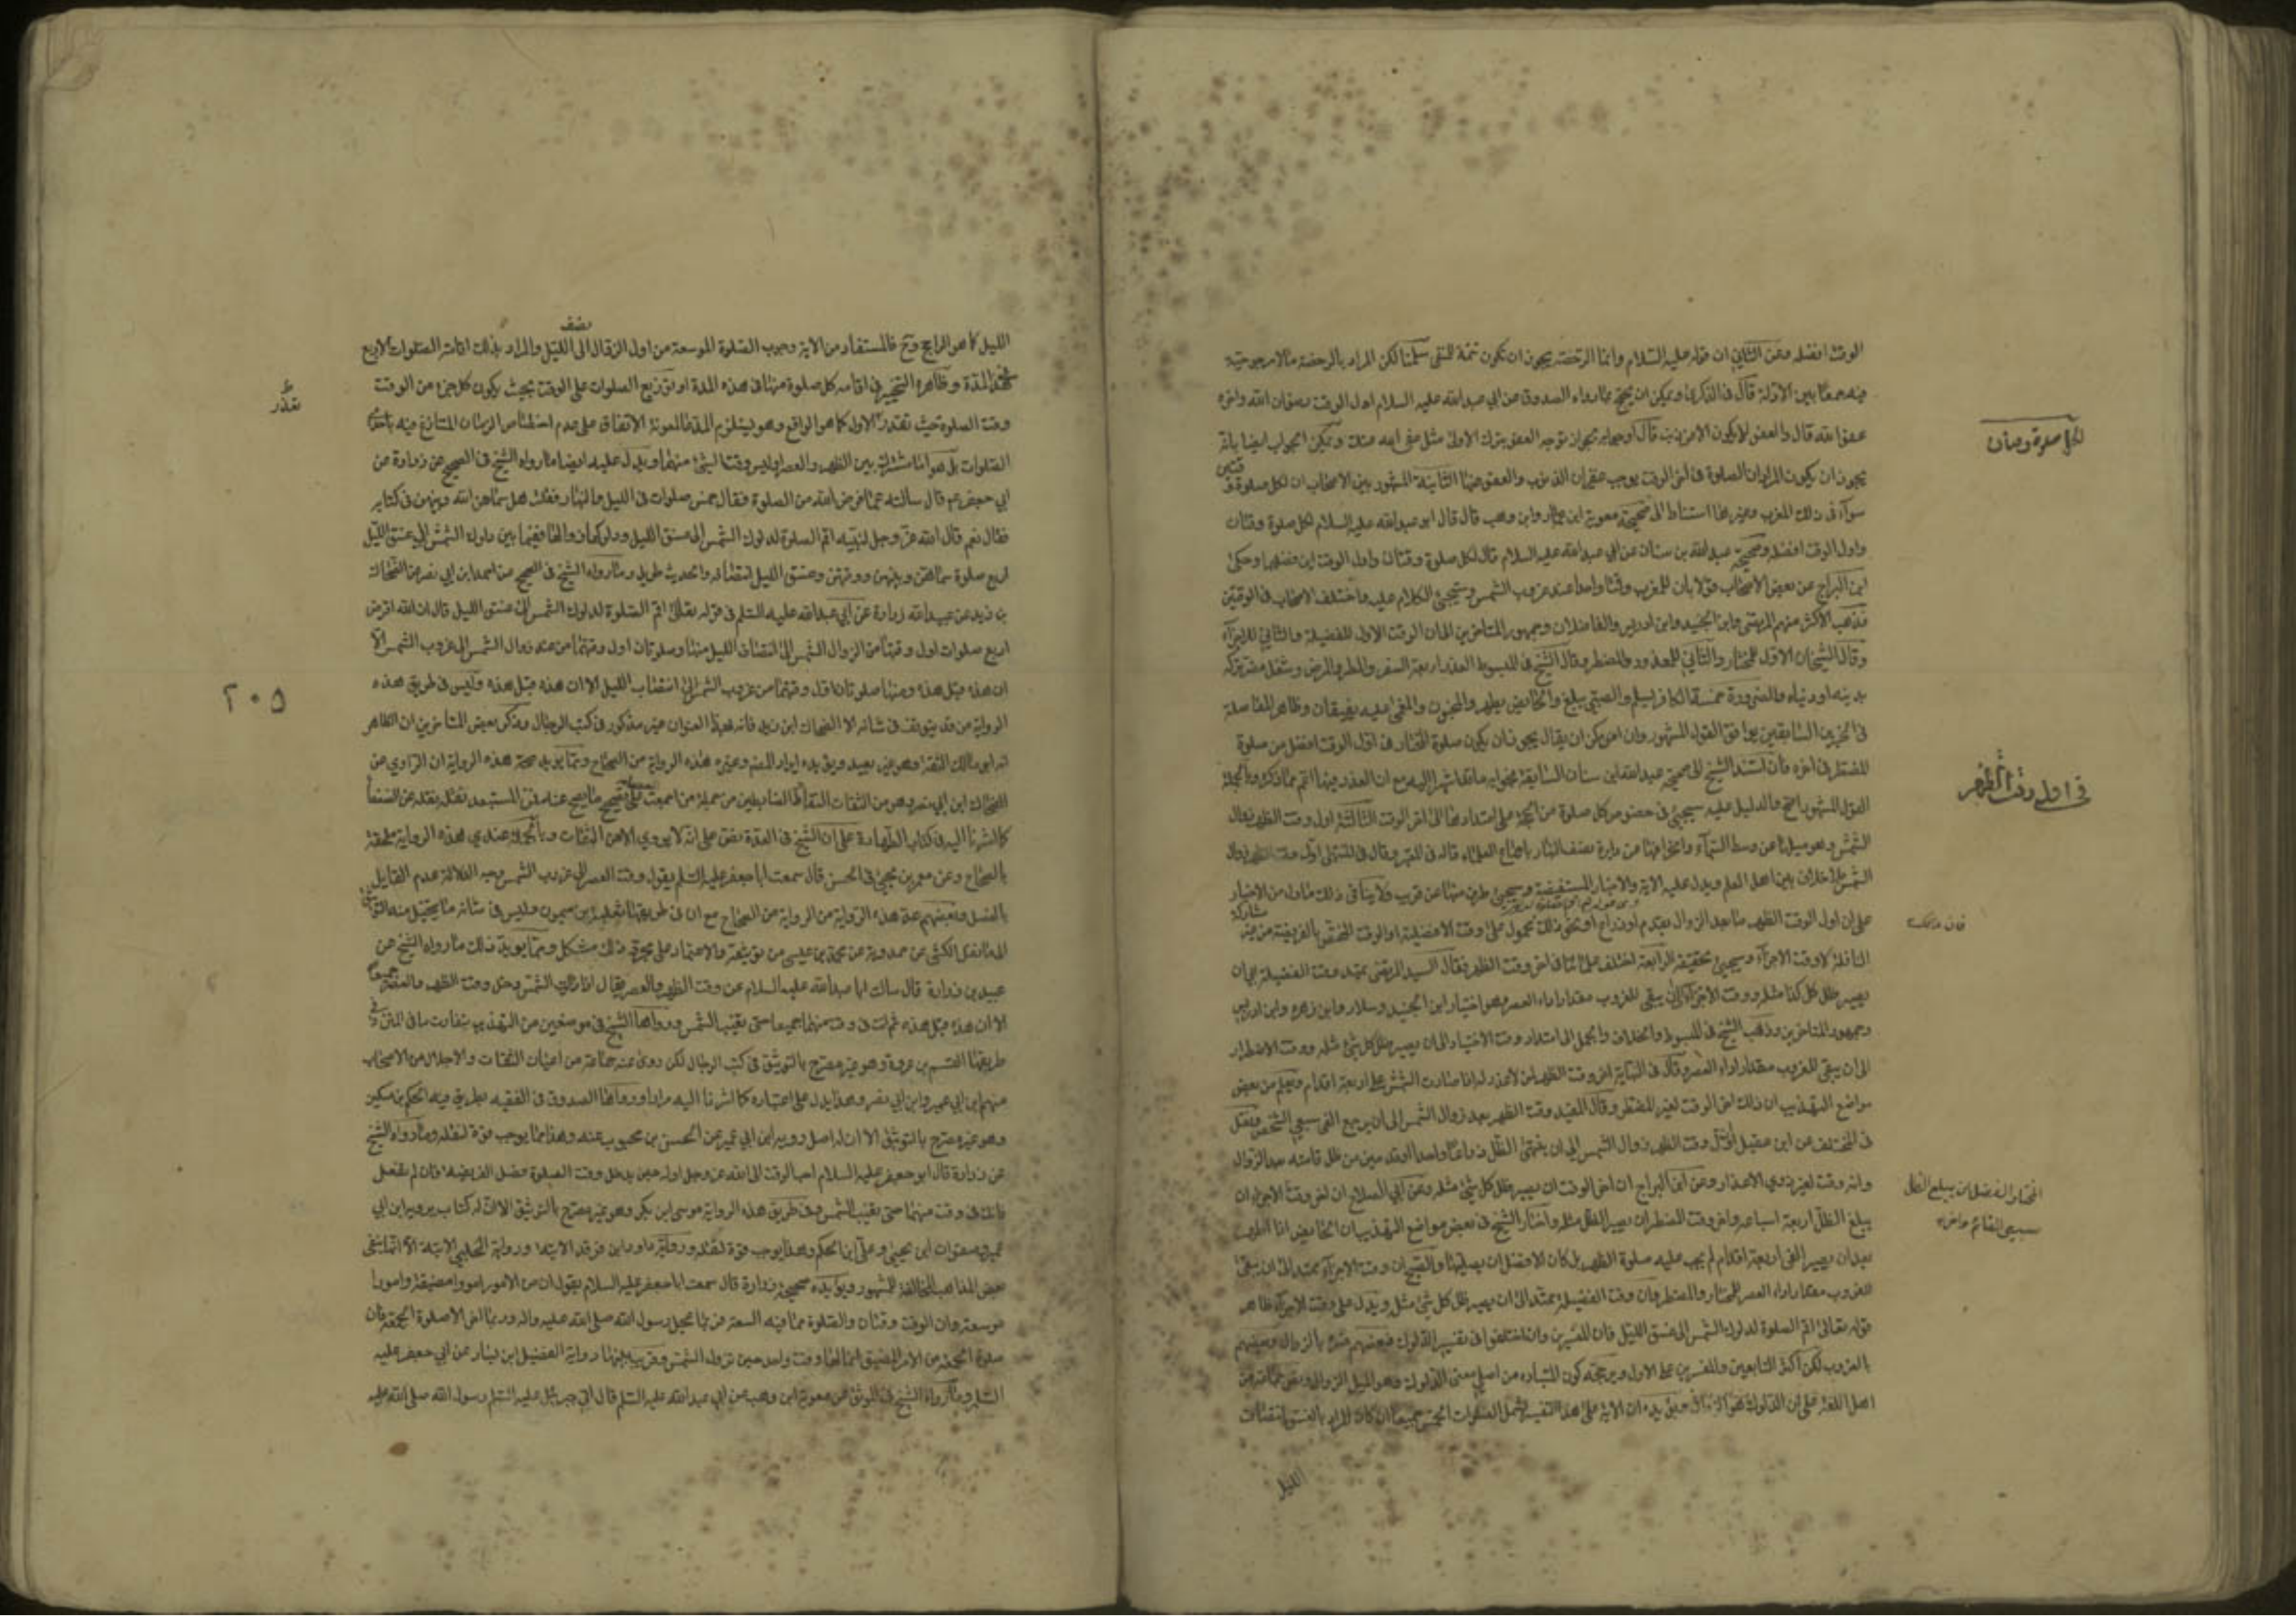 الوقت افضله وعن الثاني ان قوله عليه السلام وانما الرخصة يجوز ان تكون تتمة للنفي سلمنا لكن المراد بالرخصة مالا مرجوحية
فيه جمعا بين الادلة قال في الذكرى ويمكن ان يحتج بما رواه الصدوق عن ابي عبد الله عليه السلام اول الوقت رضوان الله واخره
عفو الله قال والعفو لا يكون الا من ذنب قال وجوابه بجواز توجه العفو بترك الاولى مثل عفى الله عنك ويمكن الجواب ايضا بانه
يجوز ان يكون المراد ان الصلوة في اخر الوقت يوجب غفران الذنوب والعفو عنها الثانية المشهور بين الاصحاب ان لكل صلوة وقتين
سوآء في ذلك المغرب وغيرها استنادا الى صحيحة معوية ابن عمار وابن وهب قال قال ابو عبد الله عليه السلام لكل صلوة وقتان
واول الوقت افضله وصحيحة عبد الله بن سنان عن ابي عبد الله عليه السلام قال لكل صلوة وقتان واول الوقتين افضلهما وحكى
ابن البراج عن بعض الاصحاب قولا بان للمغرب وقتا واحدا عند غروب الشمس وسيجئ الكلام عليه واختلف الاصحاب في الوقتين
فذهب الاكثر منهم المرتضى وابن الجنيد وابن ادريس والفاضلان وجمهور المتاخرين الى ان الوقت الاول للفضيلة والثاني للاجزآء
وقال الشيخان الاول للمختار والثاني للمعذور والمضطر وقال الشيخ في المبسوط العذر اربعة السفر والمطر والمرض وشغل يضر تركه
بدينه او دنياه والضرورة خمسة الكافر يسلم والصبي يبلغ والحائض يطهر والمجنون والمغمى عليه يفيقان وظاهر المفاضلة
في الخبرين السابقين يوافق القول المشهور وان امكن ان يقال يجوز ان يكون صلوة المختار في اول الوقت افضل من صلوة
المضطر في اخره فان استند الشيخ الى صحيحة عبد الله ابن سنان السابقة فجوابه ما تقدم اشر اليه مع ان العذر فيها اعم مما ذكره وبالجملة
القول المشهور اصح والدليل عليه سيجئ في خصوص كل صلوة من الحجة على امتدادها الى اخر الوقت الثالثة اول وقت الظهر زوال
الشمس وهو ميلها عن وسط السمآء وانحرافها عن دايرة نصف النهار باجماع العلماء قاله في المعتبر وقال في المنتهى اول وقت الظهر زوال
الشمس بلا خلاف بين اهل العلم ويدل عليه الاية والاخبار المستفيضة وسيجئ طرف منها عن قريب ولا ينافي ذلك ما دل من الاخبار
على ان اول الوقت الظهر ما بعد الزوال بقدم او ذراع او نحو ذلك محمول على وقت الافضلية او الوقت المختص بالفريضة من غير مشاركة
النافلة لا وقت الاجزآء وسيجئ تحقيقه الرابعة اختلف علماؤنا في اخر وقت الظهر فقال السيد المرتضى يمتد وقت الفضيلة الى ان
يصير ظل كل شئ مثله ووقت الاجزآء الى ان يبقى للغروب مقدار اداء العصر وهو اختيار ابن الجنيد وسلار وابن زهرة وابن ادريس
وجمهور المتاخرين وذهب الشيخ في المبسوط والخلاف والجمل الى امتداد وقت الاختيار الى ان يصير ظل كل شئ مثله ووقت الاضطرار
الى ان يبقى للغروب مقدار اداء العصر وقال في النهاية اخر وقت الظهر لمن لا عذر له اذا صارت الشمس على اربعة اقدام ويعلم من بعض
مواضع التهذيب ان ذلك اخر الوقت لغير المضطر وقال المفيد وقت الظهر بعد زوال الشمس الى ان يرجع الفئ سبعي الشخص ونقل
في المختلف عن ابن عقيل ان اول وقت الظهر زوال الشمس الى ان ينتهي الظل ذراعا واحدا او قدمين من ظل قامته بعد الزوال
وانه وقت لغير ذوي الاعذار وعن ابن البراج ان اخر الوقت ان يصير ظل كل شئ مثله وعن ابي الصلاح ان اخر وقت الاجزاء ان
يبلغ الظل اربعة اسباعه واخر وقت المضطر ان يصير الظل مثله واختار الشيخ في بعض مواضع التهذيب ان الحايض اذا طهرت
بعد ان يصير الفئ اربعة اقدام لم يجب عليه صلوة الظهر بل كان الافضل ان يصليها والصحيح ان وقت الاجزآء يمتد الى ان يبقى
للغروب مقدار اداء العصر للمختار والمضطر وان وقت الفضيلة يمتد الى ان يصير ظل كل شئ مثله ويدل على وقت الاجزآء ظاهر
قوله تعالى اقم الصلوة لدلوك الشمس الى غسق الليل فان المفسرين وان اختلفوا في تفسير الدلوك فبعضهم فسره بالزوال وبعضهم
بالغروب لكن اكثر التابعين والمفسرين على الاول ويرجحه كون المتبادر من اصل معنى الدلوك وهو الميل الزوال ونص جماعة من
اهل اللغة على ان الدلوك هو الزوال ويؤيده ان الاية على هذا التفسير تشمل الصلوات الخمس جميعا ان كان المراد بالغسق انتصاف
الليل
لكل صلوة وقتان
في اول وقت الظهر
المختار الفضل ان يبلغ الظل
سبعي القائم واخره
نصف
الليل كما هو الراجح وح فالمستفاد من الاية وجوب الصلوة الموسعة من اول الزوال الى الليل والمراد بذلك اقامة الصلوات الاربع
في هذه المدة وظاهره التخيير في اقامة كل صلوة منها في هذه المدة او توزيع الصلوات على الوقت بحيث يكون كل جزء من الوقت
وقت الصلوة حيث تعذر الاول كما هو الواقع وهو يستلزم المدة المعونة الاتفاق على عدم اختصاص الزمان المتنازع فيه باحدى
الصلوات بل هو اما مشترك بين الظهر والعصر او ليس وقتا لشئ منهما ويدل عليه ايضا ما رواه الشيخ في الصحيح عن زرارة عن
ابي جعفر ع قال سالته عما فرض الله من الصلوة فقال خمس صلوات في الليل والنهار فقلت هل سماهن الله وبينهن في كتابه
فقال نعم قال الله عز وجل لنبيه اقم الصلوة لدلوك الشمس الى غسق الليل ودلوكها زوالها ففيما بين دلوك الشمس الى غسق الليل
اربع صلوة سماهن وبينهن ووقتهن وغسق الليل انتصافه والحديث طويل وما رواه الشيخ في الصحيح عن احمد ابن ابي نصر عن الضحاك
بن زيد عن عبيد الله زرارة عن ابي عبد الله عليه السلم في قوله تعالى اقم الصلوة لدلوك الشمس الى غسق الليل قال ان الله افترض
اربع صلوات اول وقتها من الزوال الشمس الى انتصاف الليل منها وصلوتان اول وقتهما من عند زوال الشمس الى غروب الشمس الا
ان هذه قبل هذه ومنها صلوتان اول وقتهما من غروب الشمس الى انتصاف الليل الا ان هذه قبل هذه وليس في طريق هذه
الرواية من قد يتوقف في شانه الا الضحاك ابن زيد فانه بهذا العنوان غير مذكور في كتب الرجال وذكر بعض المتاخرين ان الظاهر
انه ابو مالك الثقة وهو غير بعيد ويؤيده ايراد المصنف وغيره هذه الرواية من الصحاح ومما يؤيد صحة هذه الرواية ان الراوي عن
الضحاك ابن ابي نصر وهو من الثقات النقاد الضابطين من جملة من اجمعت على تصحيح ما يصح عنه فمن المستبعد نقله عن الضعفاء
كما اشرنا اليه في كتاب الطهارة على ان الشيخ في العدة نص على انه لا يروي الا عن الثقات وبالجملة عندي هذه الرواية ملحقة
بالصحاح وعن معمر بن يحيى في الحسن قال سمعت ابا جعفر عليه السلم يقول وقت العصر الى غروب الشمس وجه الدلالة عدم القايل
بالفصل وبعضهم عد هذه الرواية من الرواية من الصحاح مع ان في طريقها ثعلبة بن ميمون وليس في شانه ما يتخيل منه التوثيق
الا ما نقل الكشي عن حمدويه عن محمد بن عيسى من توثيقه والاعتماد على مجرد ذلك مشكل ومما يؤيد ذلك ما رواه الشيخ عن
عبيد بن زرارة قال سالت ابا عبد الله عليه السلام عن وقت الظهر والعصر فقال اذا زالت الشمس دخل وقت الظهر والعصر جميعا
الا ان هذه قبل هذه ثم انت في وقت منهما جميعا حتى تغيب الشمس ورواها الشيخ في موضعين من التهذيب بتفاوت ما في المتن وفي
طريقها القسم بن عروة وهو غير مصرح بالتوثيق في كتب الرجال لكن روى عنه جماعة من اعيان الثقات والاجلاء من الاصحاب
منهم ابن ابي عمير وابن ابي نصر وهذا يدل على اعتباره كما اشرنا اليه مرارا ورواها الصدوق في الفقيه بطريق فيه الحكم بن مسكين
وهو غير مصرح بالتوثيق الا ان له اصل ورويه ابن ابي عمير عن الحسن بن محبوب عنه وهذا مما يوجب قوة لنقله وما رواه الشيخ
عن زرارة قال ابو جعفر عليه السلام احب الوقت الى الله عز وجل اوله حين يدخل وقت الصلوة فصل الفريضة فان لم تفعل
فانك في وقت منهما حتى تغيب الشمس وفي طريق هذه الرواية موسى ابن بكر وهو غير مصرح بالتوثيق الا ان له كتاب يرويه ابن ابي
عمير وصفوان ابن يحيى وعلي ابن الحكم وهذا يوجب قوة لنقله ورواية داود ابن فرقد الاتية ورواية الحلبي الاتية الا انها تنفى
بعض المذاهب المخالفة للمشهور ويؤيده صحيحة زرارة قال سمعت ابا جعفر عليه السلام يقول ان من الامور امورا مضيقة وامورا
موسعة وان الوقت وقتان والصلوة مما فيه السعة فربما عجل رسول الله صلى الله عليه واله وربما اخر الا صلوة الجمعة فان
صلوة الجمعة من الامر المضيق انما لها وقت واحد حين تزول الشمس وقريب منها رواية الفضيل ابن يسار عن ابي جعفر عليه
السلم وما رواه الشيخ في الموثق عن معوية ابن وهب عن ابي عبد الله عليه السلم قال اتى جبرئيل عليه السلم رسول الله صلى الله عليه
تعذر
٢٠٥